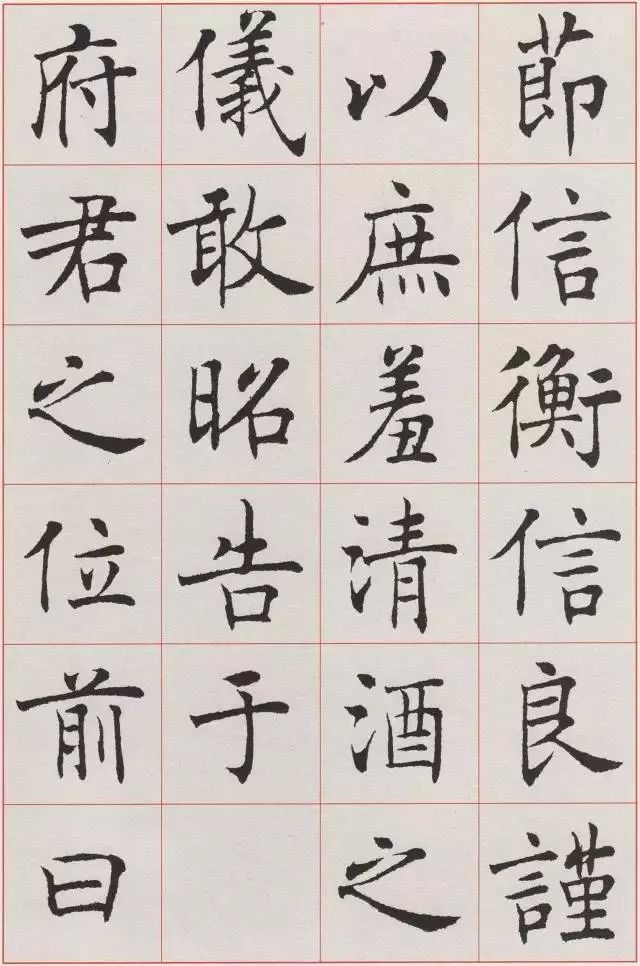 莭信衡信良謹
以庶羞清酒之
儀敢昭告于
府君之位前曰